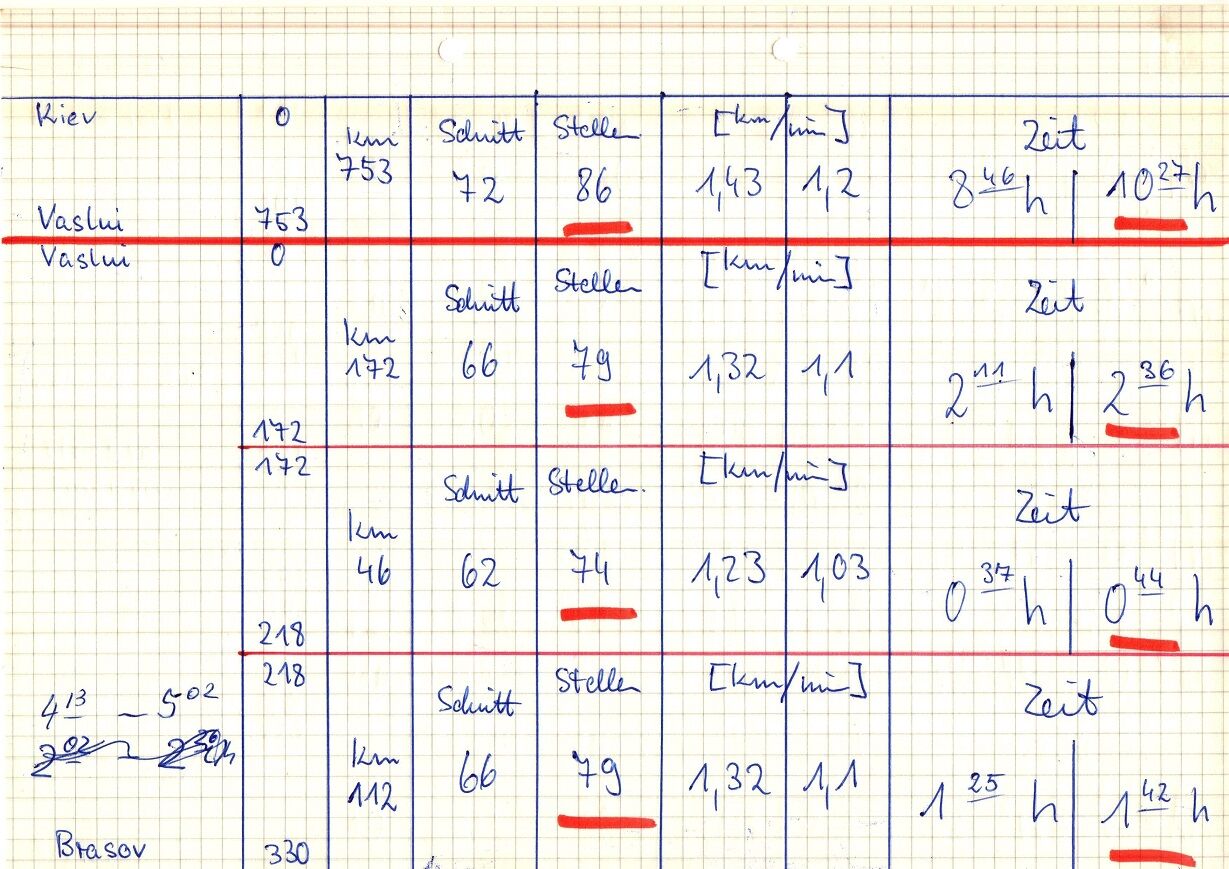 Kiev 0
km Schnitt Stellen [km/min] Zeit
753 72 86 1,43 1,2 8 46 h | 10 27 h
Vaslui 753
Vaslui 0
Schnitt Stellen [km/min] Zeit
km
172 66 79 1,32 1,1 2 11 h | 2 36 h
172
172
Schnitt Stellen. [km/min] Zeit
km
46 62 74 1,23 1,03 0 37 h | 0 44 h
218
218
Schnitt Stellen [km/min] Zeit
4 13 – 5 02
km
112 66 79 1,32 1,1 1 25 h | 1 42 h
Brasov 330